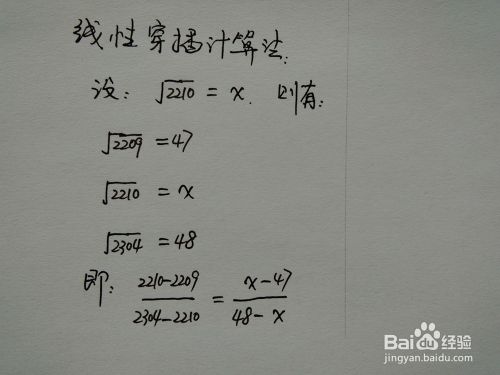 线性穿插计算法:
设: √2210 = x. 则有:
√2209 = 47
√2210 = x
√2304 = 48
即: (2210-2209)/(2304-2210) = (x-47)/(48-x)
Baidu经验
jingyan.baidu.com